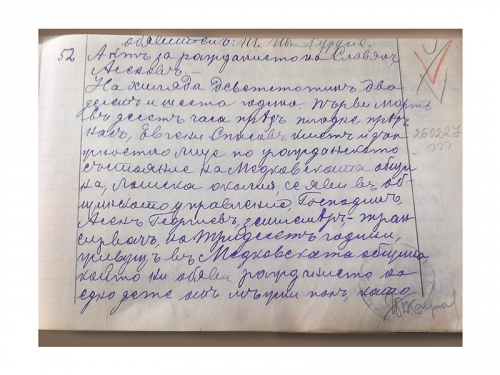 обявителъ: П. Ив.
52 Актъ за раждането на Славянъ
Асеновъ. —
На хиляда деветстотинъ два
десетъ и шеста година Първи Мартъ
въ десетъ часа предъ пладне предъ
насъ, Евгени Спасовъ кметъ и длъ
жностно лице по гражданското
състояние на Медковската общи
на, Ломска околия, се яви въ об-
щинското управление Господинъ
Асенъ Георгиевъ, 
на тридесетъ години,
живущъ въ Медковската община
който ни обяви раждането на
едно дете отъ мъжки полъ, което
260227